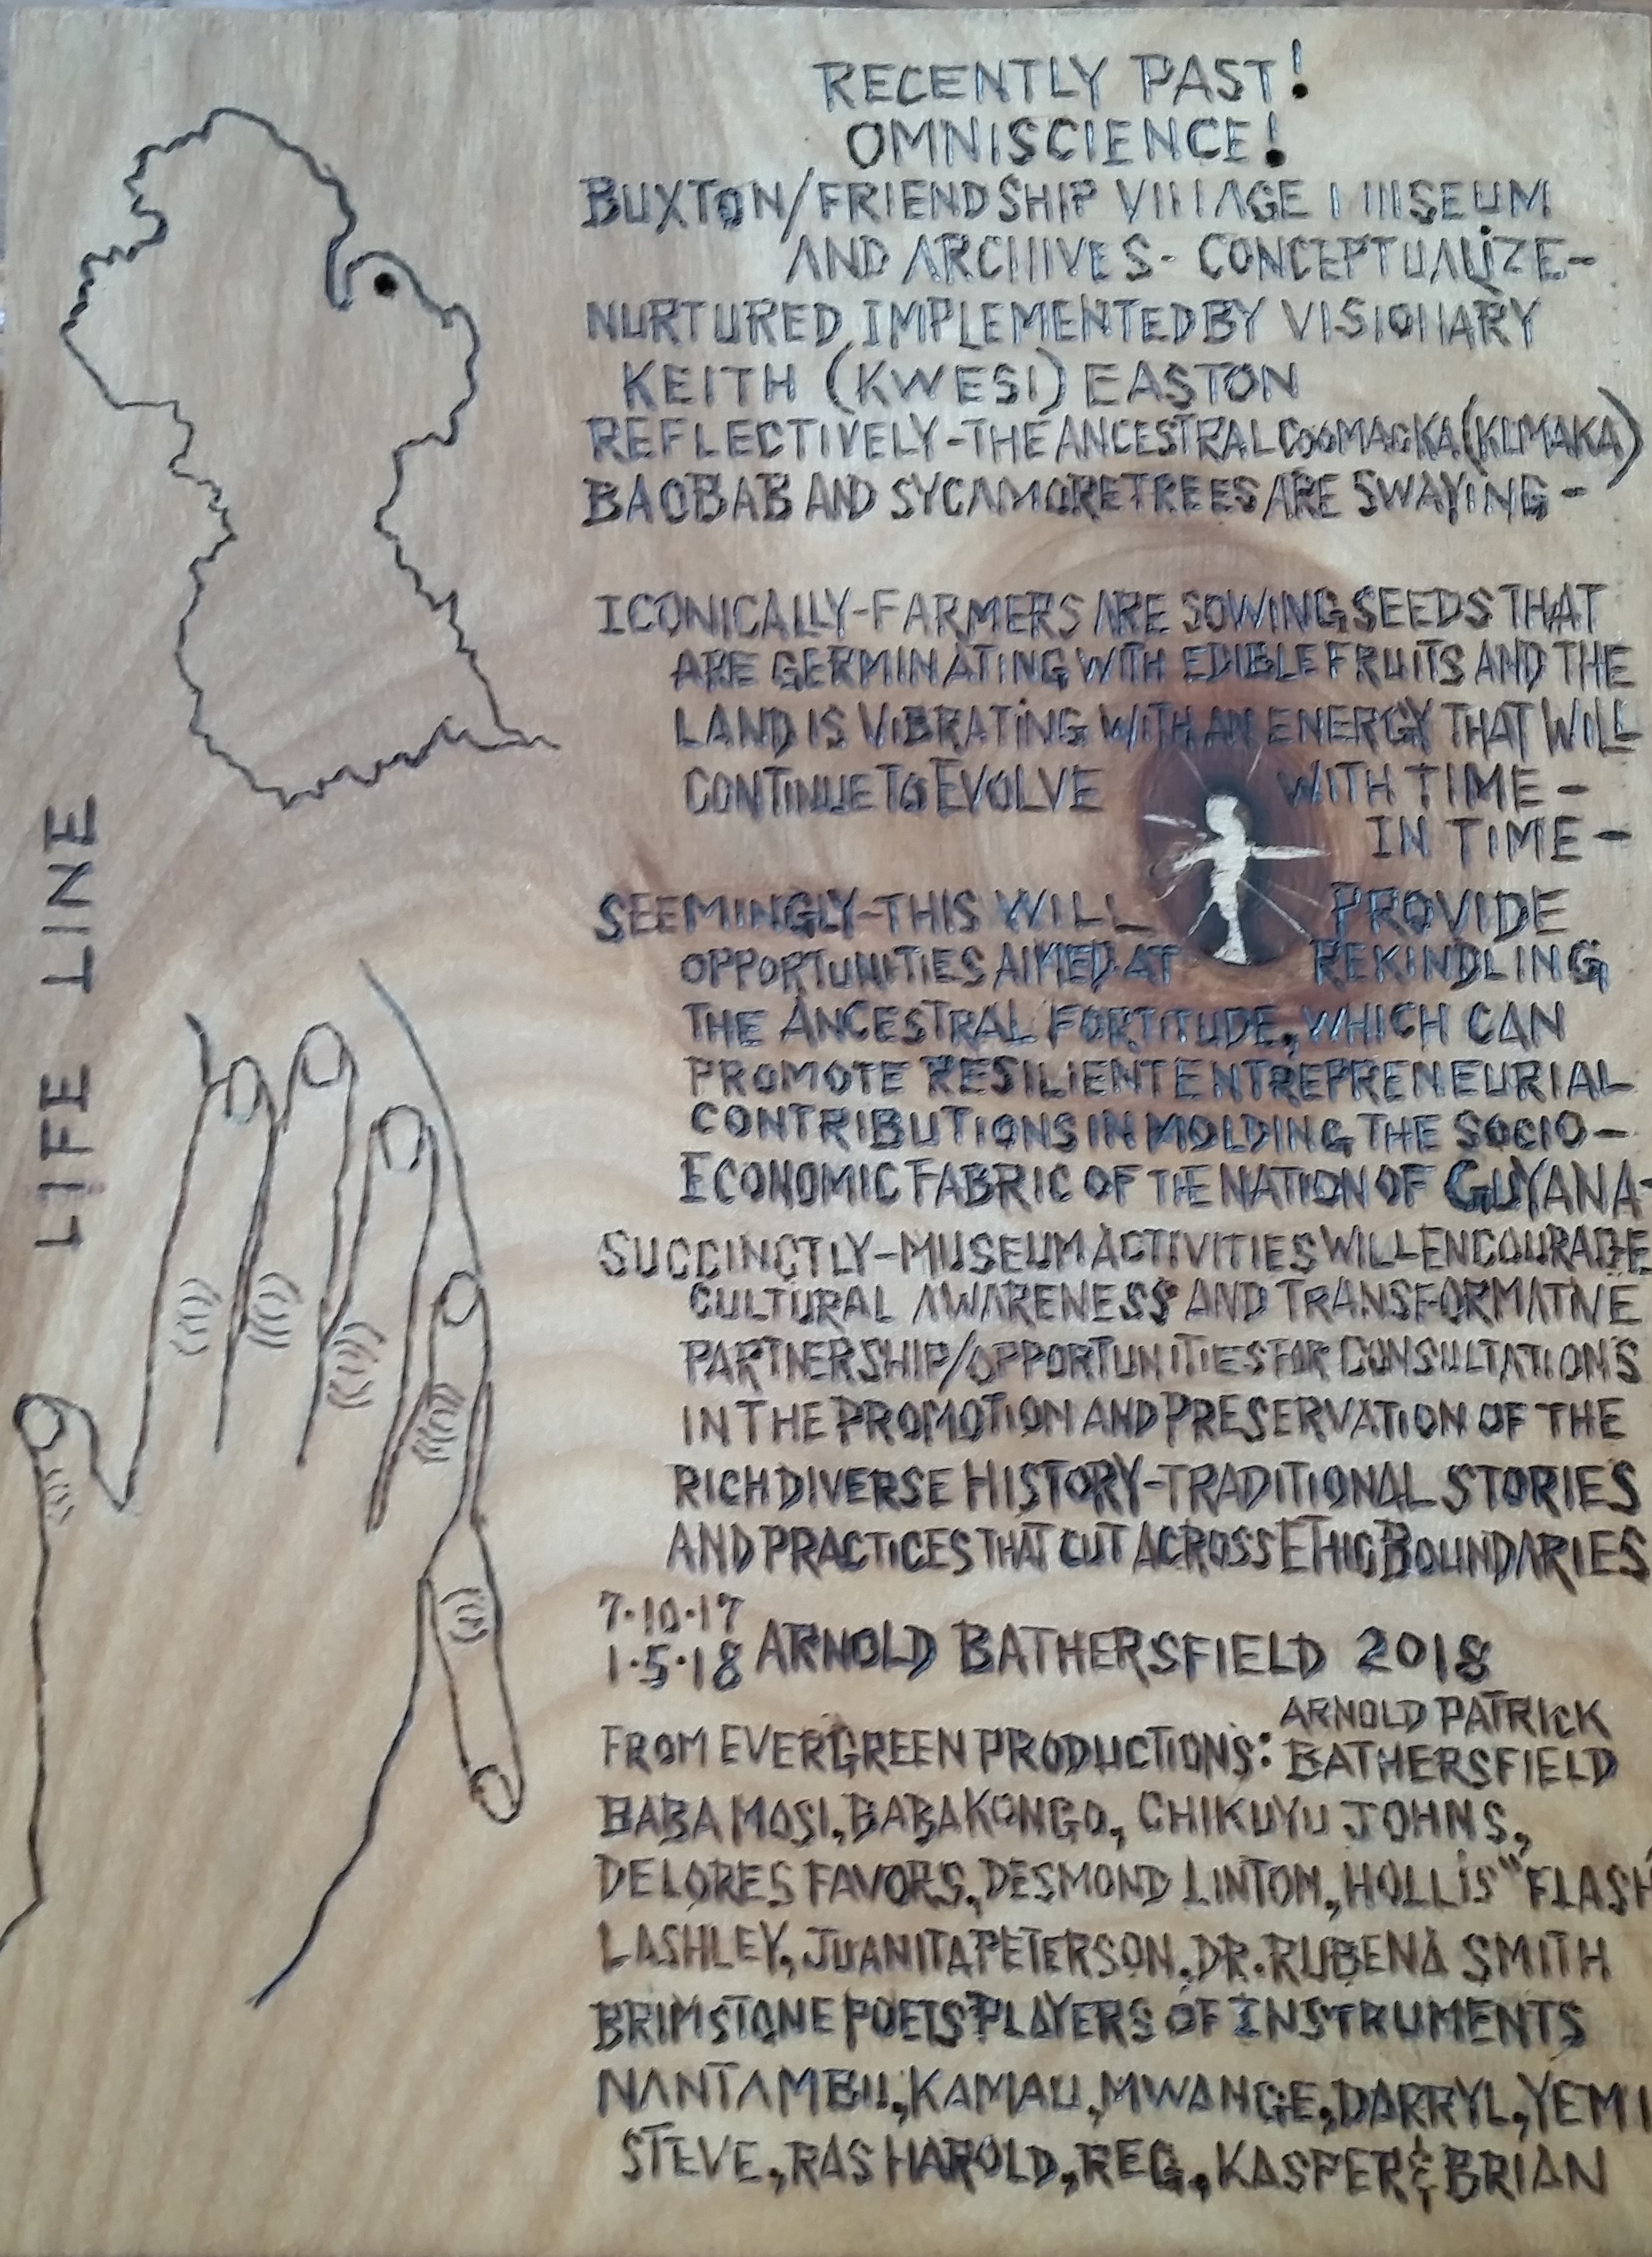 RECENTLY PAST!
OMNISCIENCE!
BUXTON/FRIENDSHIP VILLAGE MUSEUM
AND ARCHIVES- CONCEPTUALIZE-
NURTURED IMPLEMENTED BY VISIONARY
KEITH (KWESI) EASTON
REFLECTIVELY-THE ANCESTRAL COOMACKA (KUMAKA)
BAOBAB AND SYCAMORE TREES ARE SWAYING-
ICONICALLY-FARMERS ARE SOWING SEEDS THAT
ARE GERMINATING WITH EDIBLE FRUITS AND THE
LAND IS VIBRATING WITH AN ENERGY THAT WILL
CONTINUE TO EVOLVE WITH TIME-
IN TIME-
SEEMINGLY-THIS WILL PROVIDE
OPPORTUNITIES AIMED AT REKINDLING
THE ANCESTRAL FORTITUDE, WHICH CAN
PROMOTE RESILIENT ENTREPRENEURIAL
CONTRIBUTIONS IN MOLDING THE SOCIO-
ECONOMIC FABRIC OF THE NATION OF GUYANA-
SUCCINCTLY-MUSEUM ACTIVITIES WILL ENCOURAGE
CULTURAL AWARENESS AND TRANSFORMATIVE
PARTNERSHIP/OPPORTUNITIES FOR CONSULTATIONS
IN THE PROMOTION AND PRESERVATION OF THE
RICH DIVERSE HISTORY-TRADITIONAL STORIES
AND PRACTICES THAT CUT ACROSS ETHIC BOUNDARIES
7.10.17
1.5.18 ARNOLD BATHERSFIELD 2018
FROM EVERGREEN PRODUCTIONS: ARNOLD PATRICK
BATHERSFIELD
BABA MOSI, BABA KONGO, CHIKUYU JOHNS,
DELORES FAVORS, DESMOND LINTON, HOLLIS "FLASH"
LASHLEY, JUANITA PETERSON, DR. RUBENA SMITH
BRIMSTONE POETS PLAYERS OF INSTRUMENTS
NANTAMBU, KAMAU, MWANGE, DARRYL, YEMI
STEVE, RAS HAROLD, REG., KASPER & BRIAN
LIFE LINE